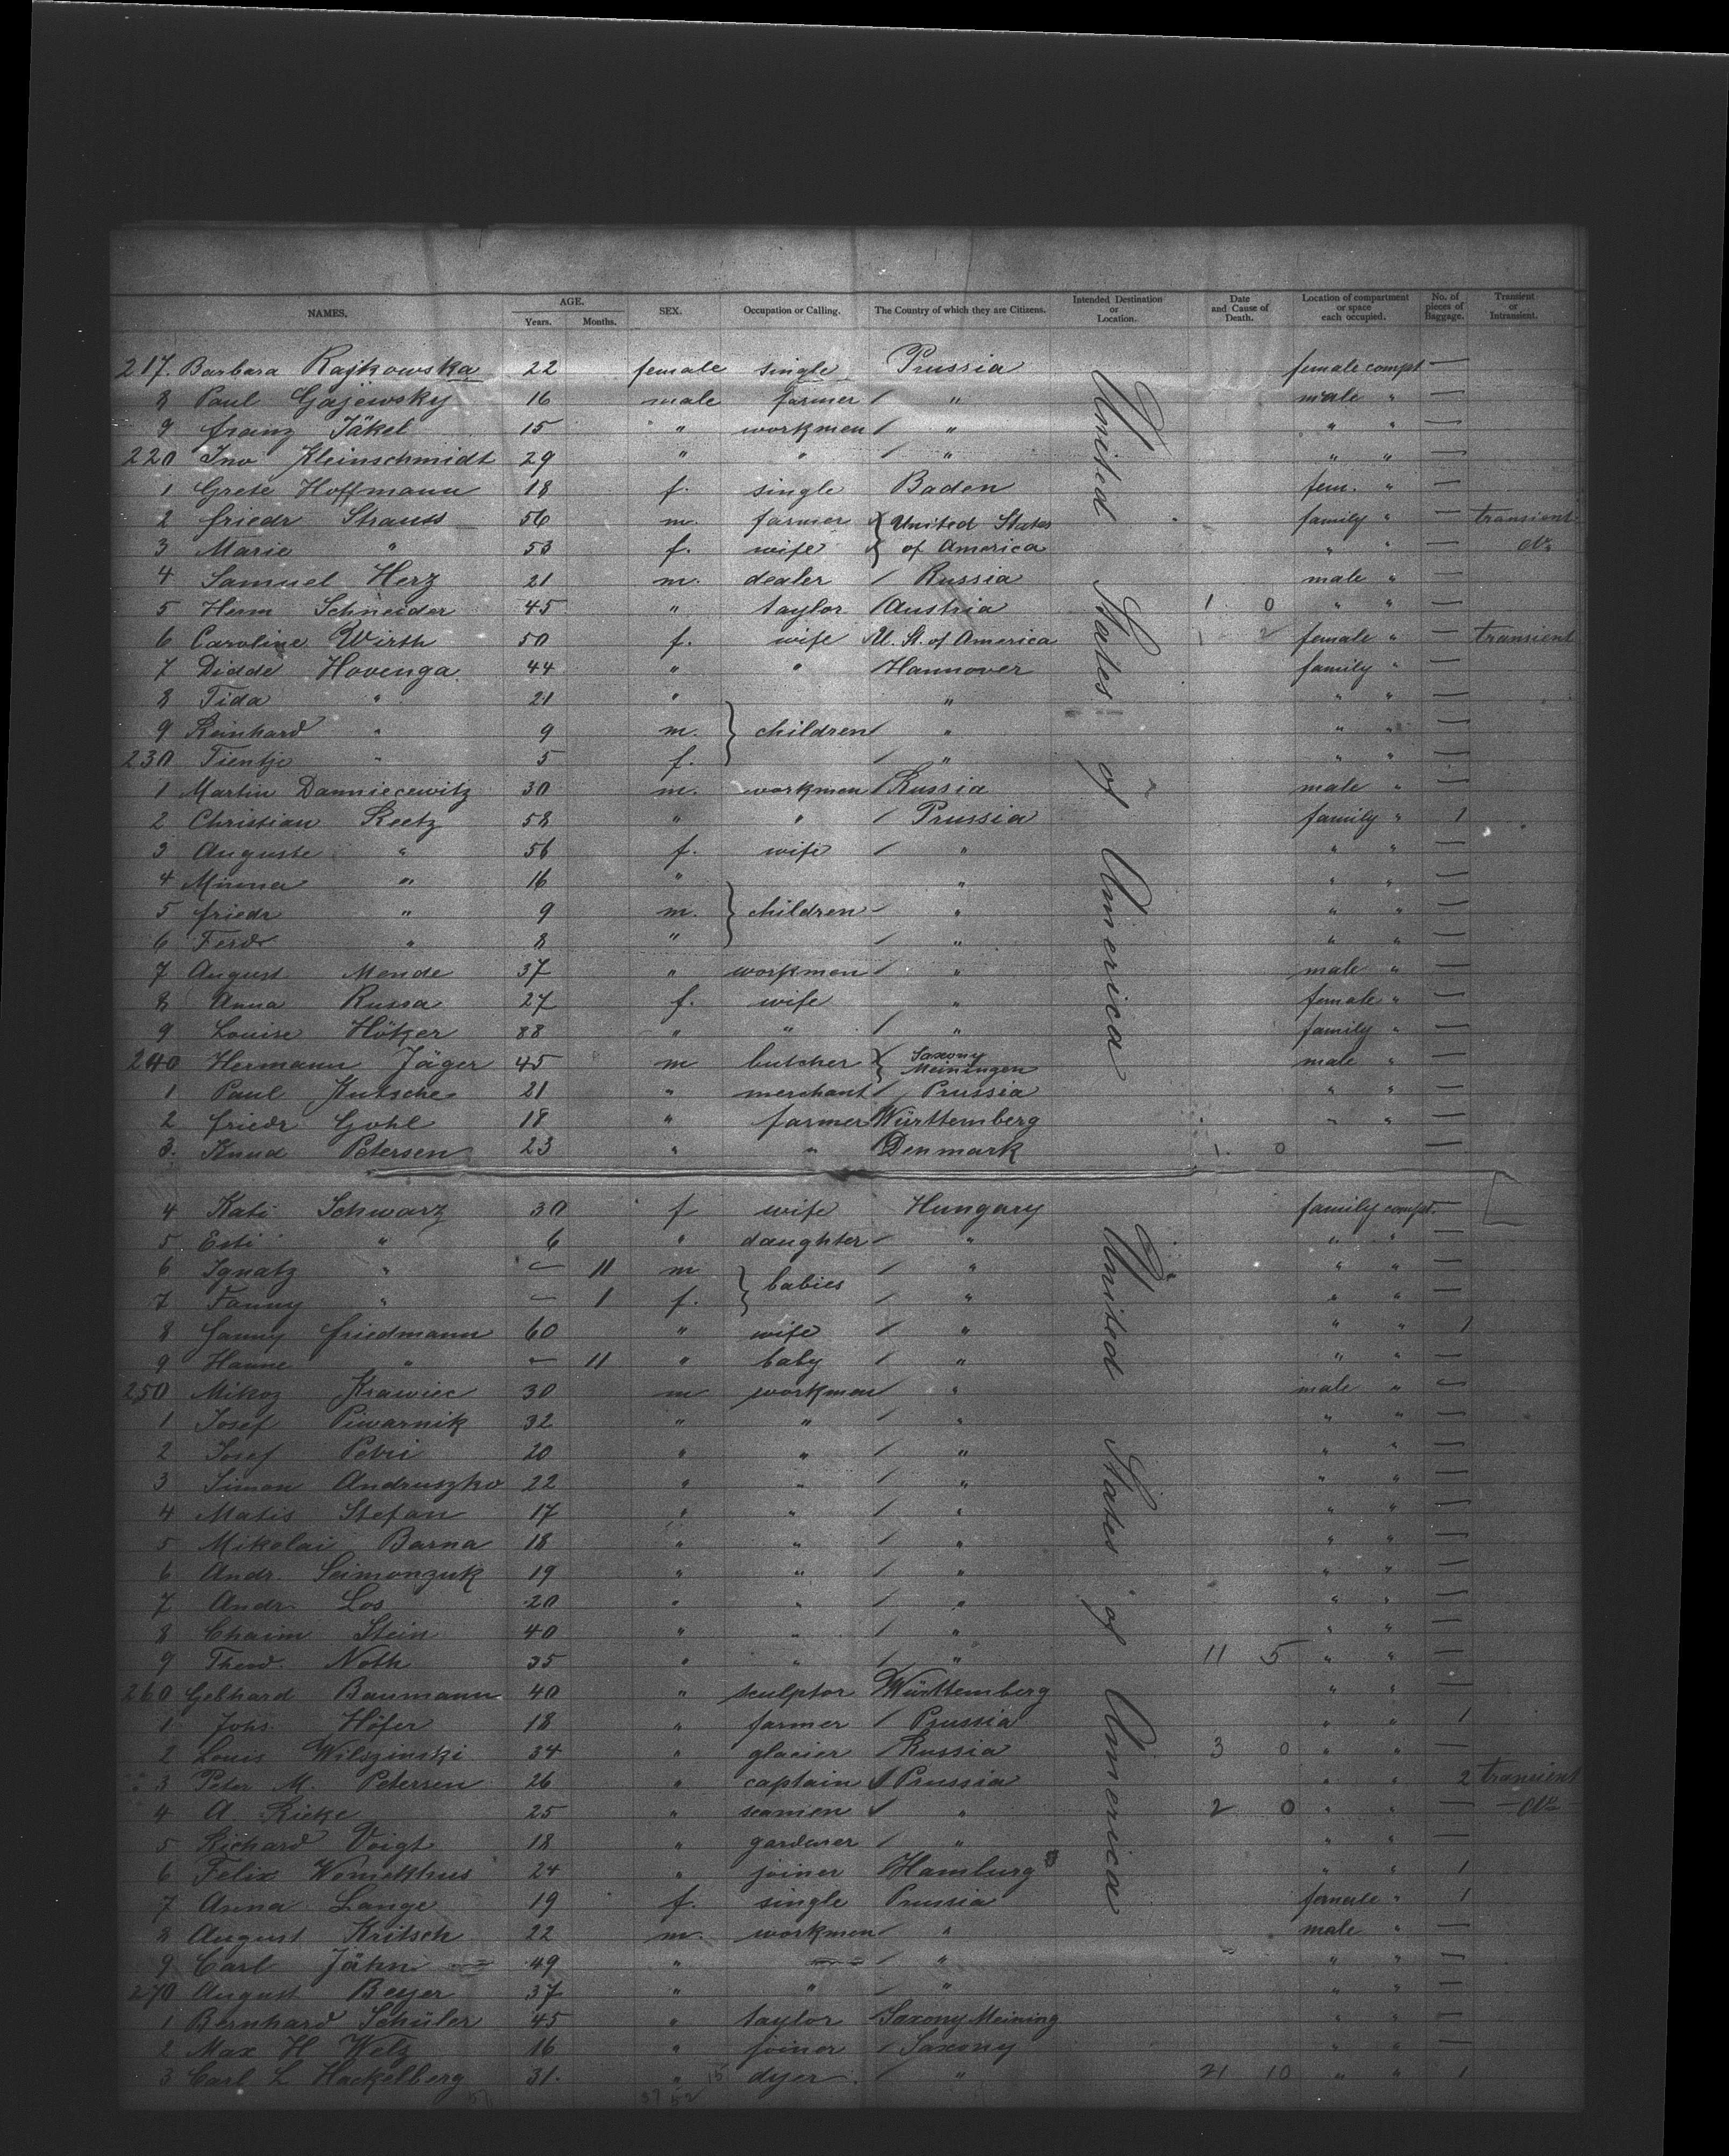 NAMES. AGE. Years. Months. SEX. Occupation or Calling. The Country of which they are Citizens. Intended Destination or Location. Date and Cause of Death. Location of compartment or space each occupied. No. of pieces of Baggage. Transient or Intransient.
217. Barbara Rajkowska 22 female single Prussia female compt —
8 Paul Gajewsky 16 male farmer / " male " —
9 Franz Jäkel 15 " workmen / " " " —
220 Kleinschmidt 29 " " / " " " —
1 Grete Hoffmann 18 f. single Baden fem. " —
2 Friedr Strauss 56 m. farmer United States family " — transient
3 Marie " 53 f. wife of America " " — do
4 Samuel Herz 21 m. dealer / Russia male " —
5 Herm Schneider 45 " taylor / Austria 1 0 " " —
6 Caroline Wirth 50 f. wife U. St. of America 1 2 female " — transient
7 Didde Hovenga 44 " " Hannover family " —
8 Tida " 21 " " " " —
9 Reinhard " 9 m. children / " " " —
230 Tientje " 5 f. / " " " —
1 Martin Danniecewitz 30 m. workmen / Russia male " —
2 Christian Reetz 58 " " / Prussia family " 1
3 Auguste " 56 f. wife / " " " —
4 Minna " 16 " " " " —
5 Friedr " 9 m. children / " " " —
6 Ferdr " 8 " / " " " —
7 August Mende 37 " workmen / " male " —
8 Anna Russa 27 f. wife " female " —
9 Louise Hötzer 88 " " / " family " —
240 Hermann Jäger 45 m butcher Saxony Meiningen male " —
1 Paul Kutsche 21 " merchant / Prussia " " —
2 Friedr Gohl 18 " farmer Württemberg " " —
3. Knud Petersen 23 " " Denmark 1 0 —
United States of America
4 Kati Schwarz 30 f wife Hungary family compt. —
5 Esti " 6 " daughter / " " " —
6 Ignatz " — 11 m babies / " " " —
7 Fanny " — 1 f. / " " " —
8 Fanny Friedmann 60 " wife / " " " 1
9 Hanne " — 11 " baby / " " " —
250 Mikoz Krawiec 30 m workmen / " male " —
1 Josef Piwarnik 32 " " / " " " —
2 Josef Petri 20 " " / " " " —
3 Simon Andruszko 22 " " / " " " —
4 Matis Stefan 17 " " / " " " —
5 Mikolai Barna 18 " " / " " " —
6 Andr. Seimonzuk 19 " " / " " " —
7 Andr. Los 20 " " / " " " —
8 Chaim Stein 40 " " / " " " —
9 Theod. Noth 35 " " / " 11 5 " " —
260 Gebhard Baumann 40 " sculptor Württemberg " " —
1 Johs. Höfer 18 " farmer / Prussia " " 1
2 Louis Wilszinski 34 " glacier / Russia 3 0 " " —
3 Peter M. Petersen 26 " captain / Prussia " " 2 transient
4 A. Rieke 25 " seamen / " 2 0 " " — do
5 Richard Voigt 18 " gardener / " " " —
6 Felix 24 " joiner Hamburg " " 1
7 Anna Lange 19 f. single Prussia female " 1
8 August Kritsch 22 m. workmen / " male " —
9 Carl Jähn 49 " / " " " —
270 August Beyer 37 " " / " " " —
1 Bernhard Schüler 45 " taylor Saxony Meining " " —
2 Max H Welz 16 " joiner / Saxony " " —
3 Carl L Hackelberg 31. " 15 dyer / " 21 10 " " 1
United States of America